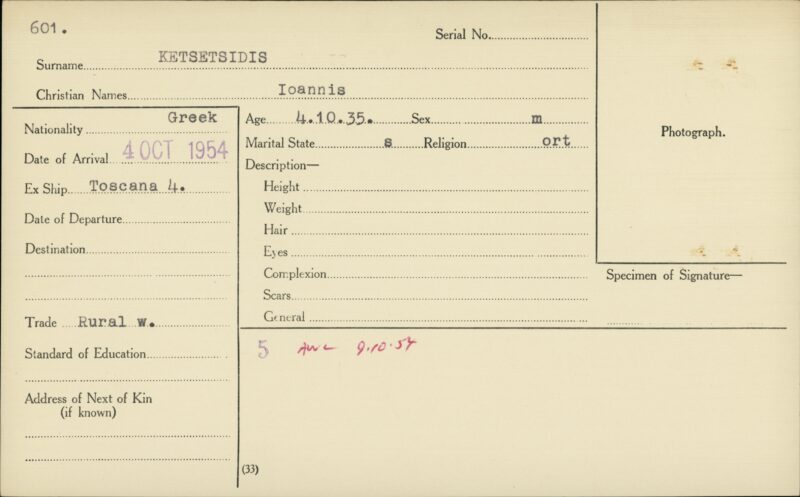 601.
Serial No.
Surname KETSETSIDIS
Christian Names Ioannis
Nationality Greek
Date of Arrival 4 OCT 1954
Ex Ship Toscana 4.
Date of Departure
Destination
Trade Rural w.
Standard of Education
Address of Next of Kin
(if known)
Age 4.10.35. Sex m
Marital State s Religion ort
Description—
Height
Weight
Hair
Eyes
Complexion
Scars
General
5 AWL 9.10.54
(33)
Photograph.
Specimen of Signature—